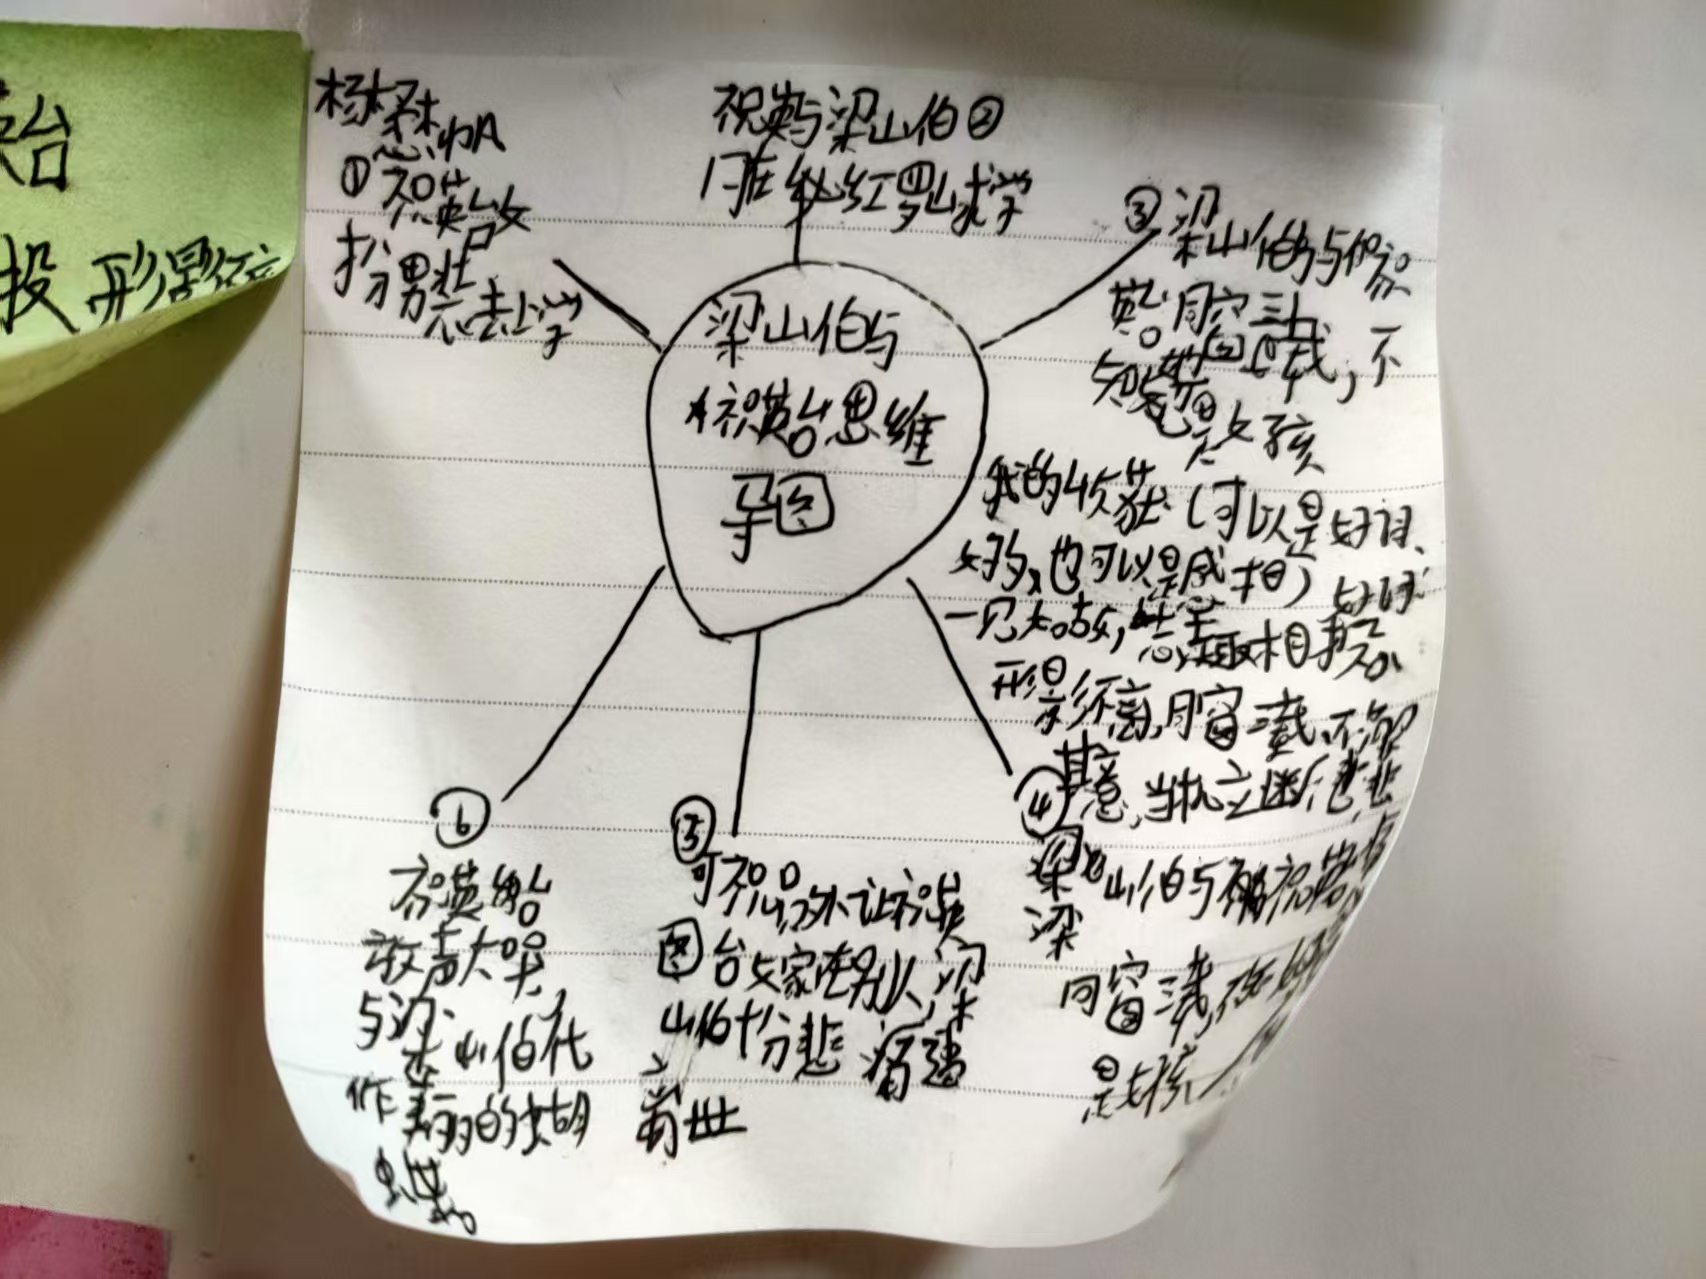 英台
投 形影不离
杨梓
① 祝英台女
扮男装去上学
祝英与梁山伯②
门在 红罗山求学
③ 梁
山伯与祝
英台同窗三载，不
知英台是女孩
梁山伯与
祝英台思维
导图
我的收获（可以是好词、
好句，也可以是感想）好词：
一见如故，志趣相投
形影不离，同窗三载，不解
其意，当机立断，悲
④
山伯与祝英台
梁
同窗三载，
是女孩
⑤
可祝员外让祝英
台女家在别人，梁
山伯十分悲痛
世
⑥
祝英台
放声大哭，
与梁山伯化
作美丽的蝴
蝶。